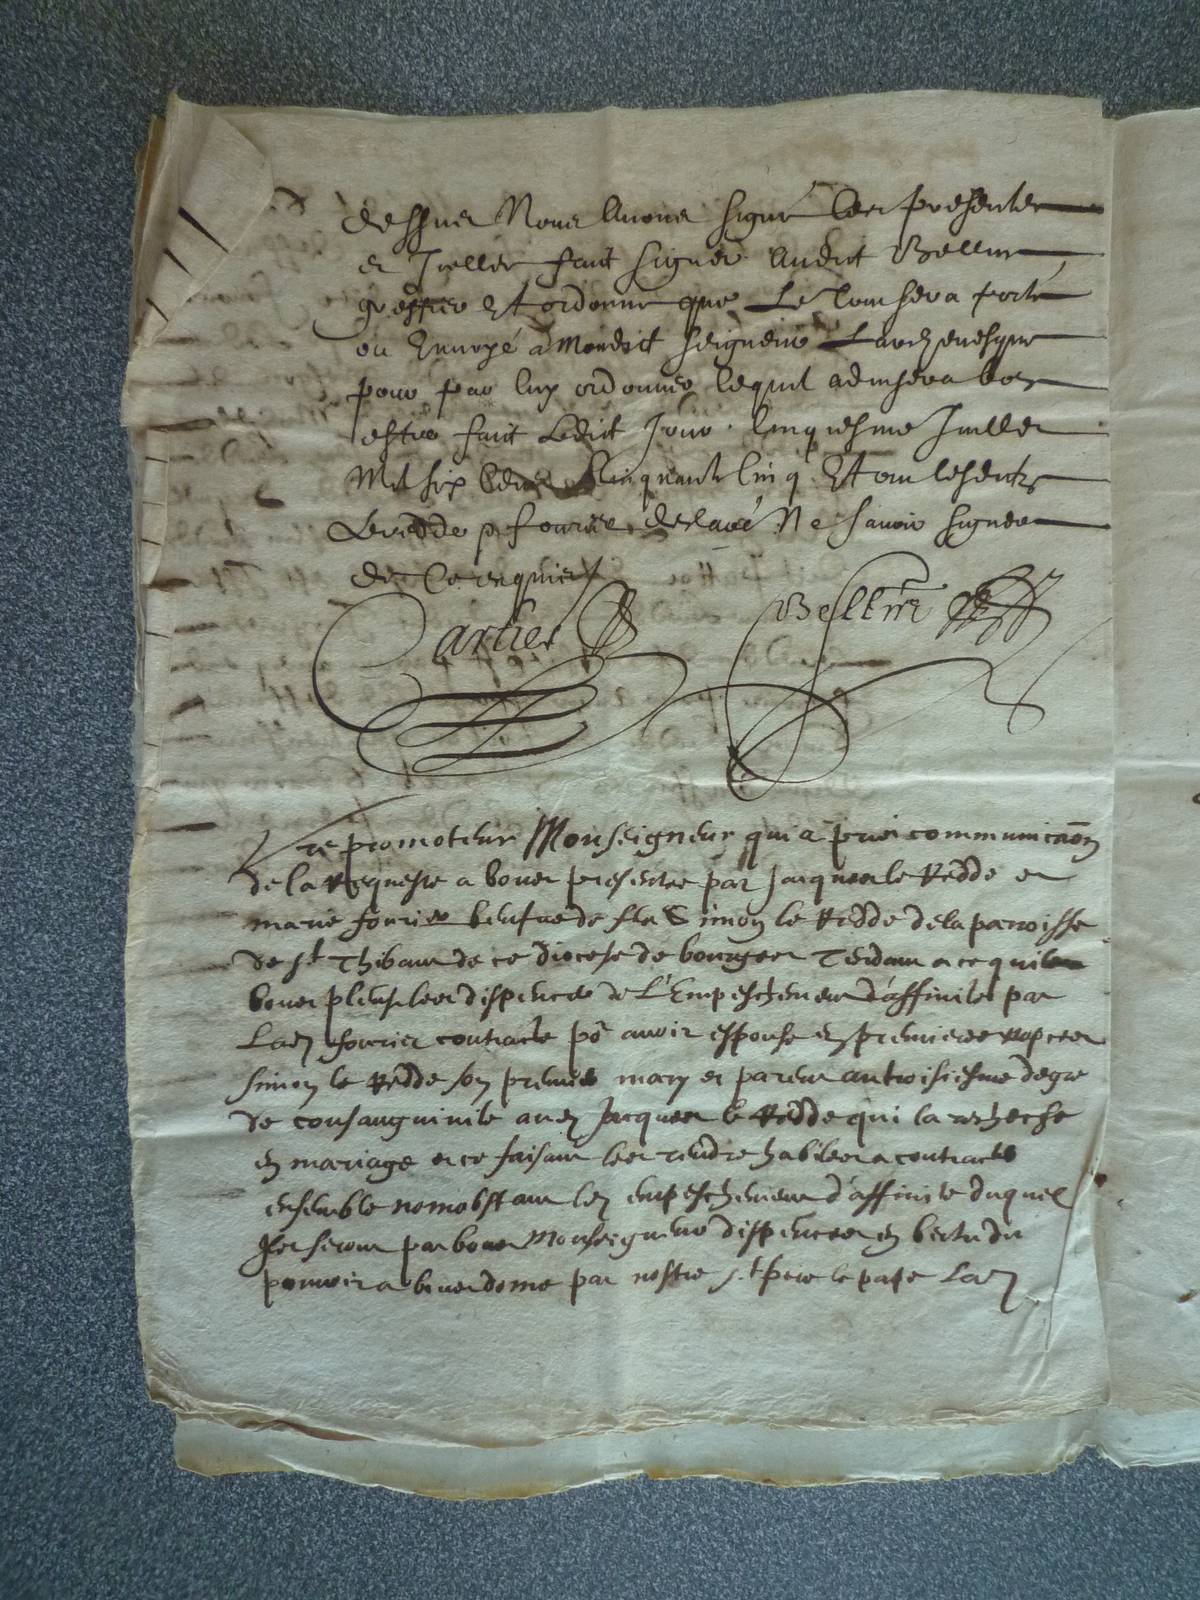 dessus Nous Avons signé Ces presentes
et Icelles fait signer Audit Bellin
greffier Et ordonné que Le Tout sera porté
ou Envoyé a Mondict Seigneur Larchevesque
pour par luy ordonner Ce quil advisera bon
estre fait Ledict Jour Cinquiesme Juillet
Mil six Cens Cinquante Cinq Et ont lesdicts
Leredde fourier declaré Ne Savoir signer
de Ce enquis
Cartier Bellin
Le promoteur Monseigneur qui a pris communicaon
de la Requeste a vous presentee par Jacques le Redde et
marie fourier veufve de feu Simon le Redde de la parroisse
de st Thibaut de ce diocese de bourges Tendant a ce quil
vous pleust les dispencer de L'Empeschement d'affinite par
Lad fourier contracte pr avoir espouse en premieres nopces
simon le Redde son premier mary et parent au troisiesme degre
de consanguinite aud Jacques le Redde qui la recheche
en mariage et ce faisant les rendre habiles a contracter
ensemble nonnobstant led empeschement d'affinite duquel
Ils seront par vous Monseigneur dispences en vertu du
pouvoir a vous donne par nostre st pere le pape Lad